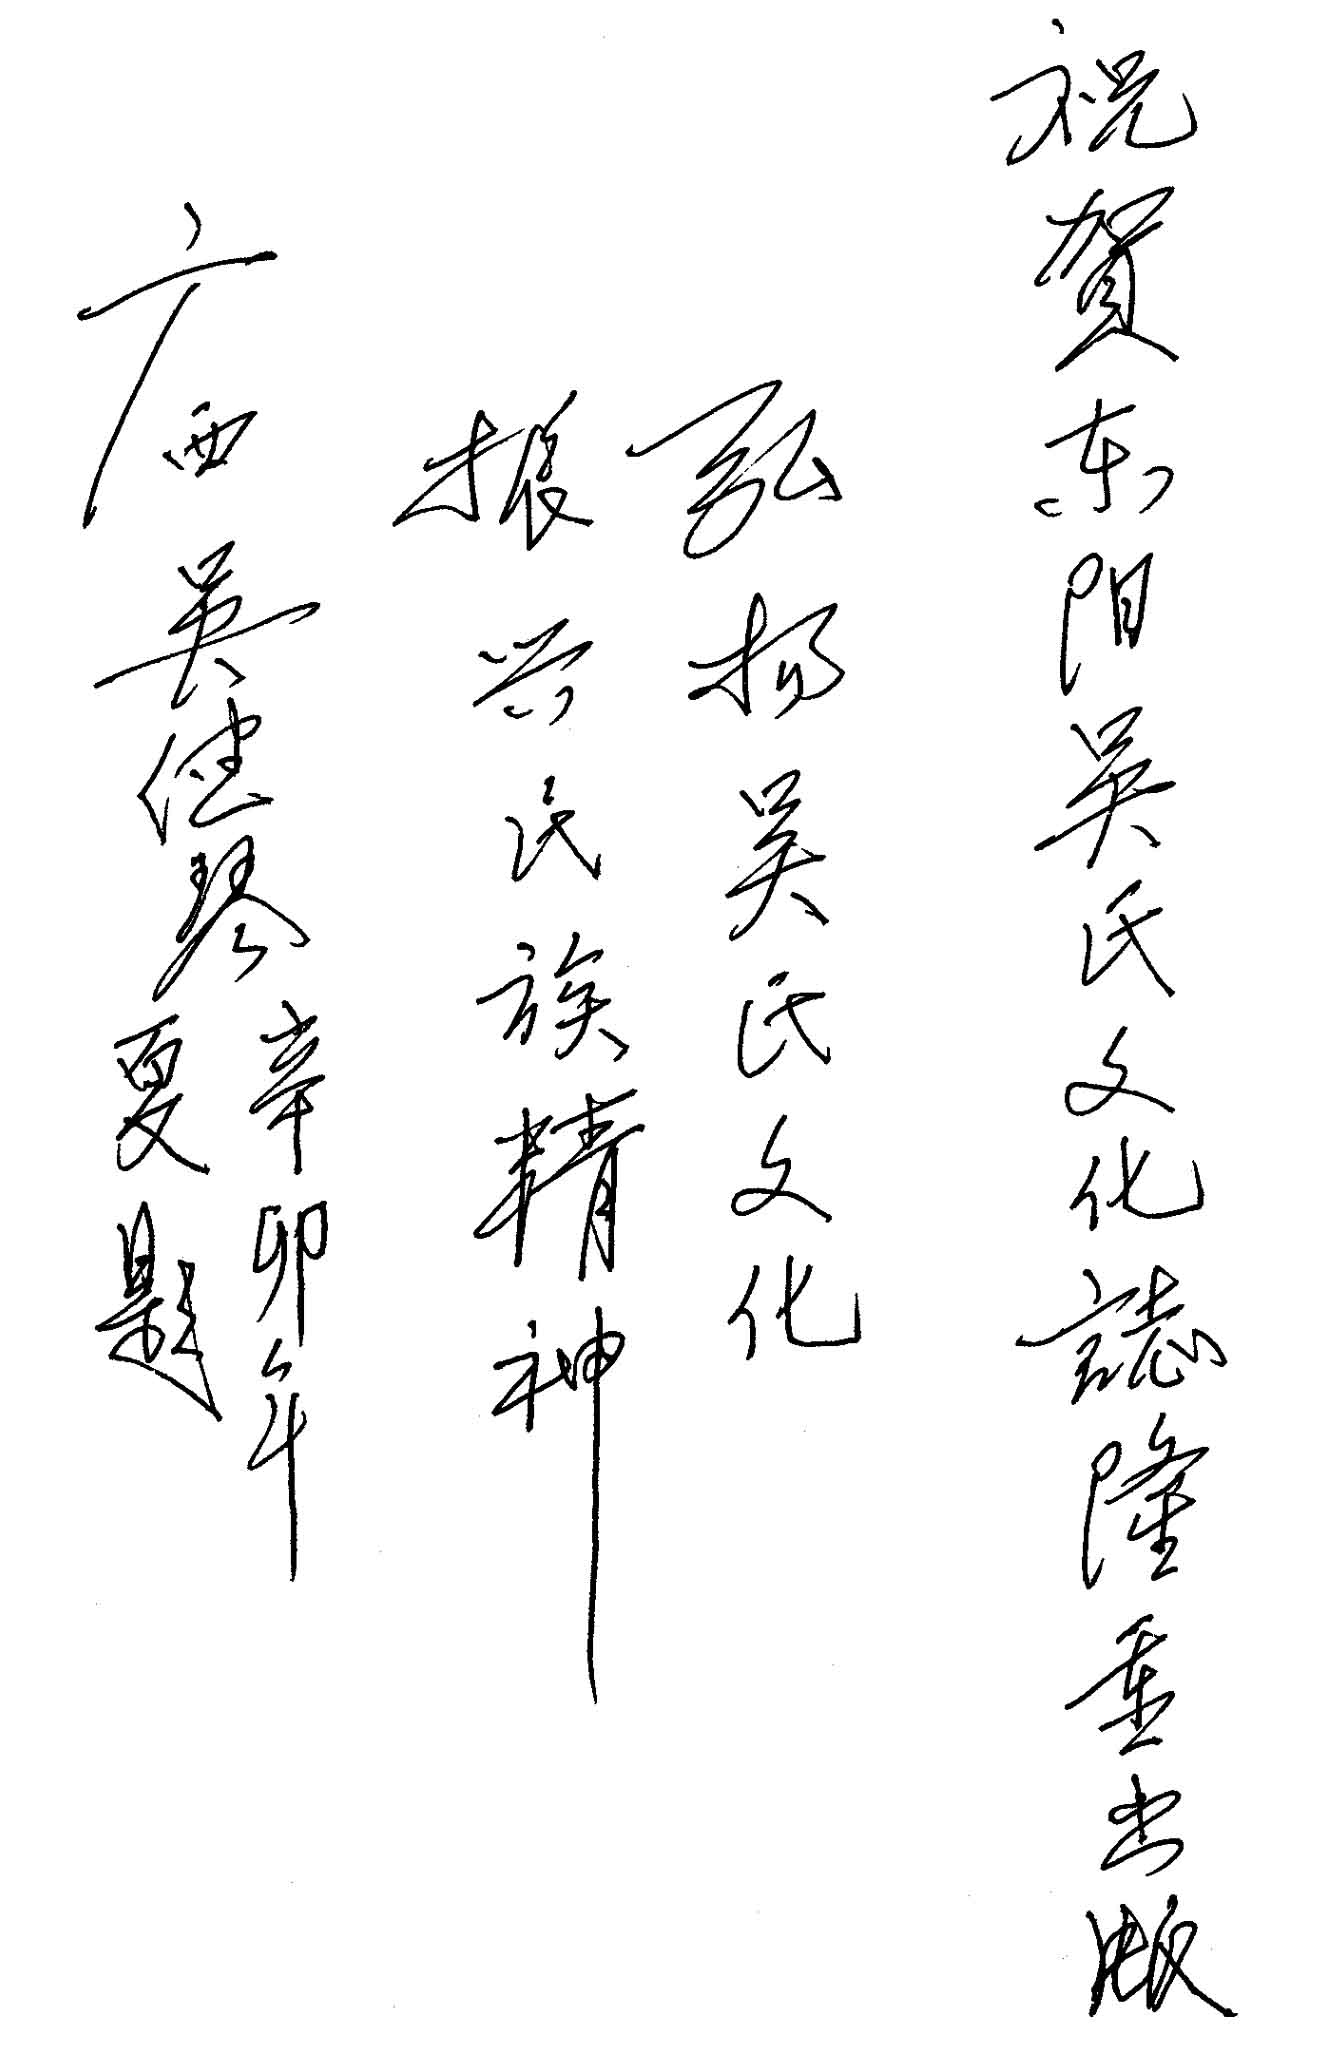 祝贺东阳吴氏文化誌隆重出版
弘扬吴氏文化
振兴民族精神
广西吴健琴
辛卯年
夏题